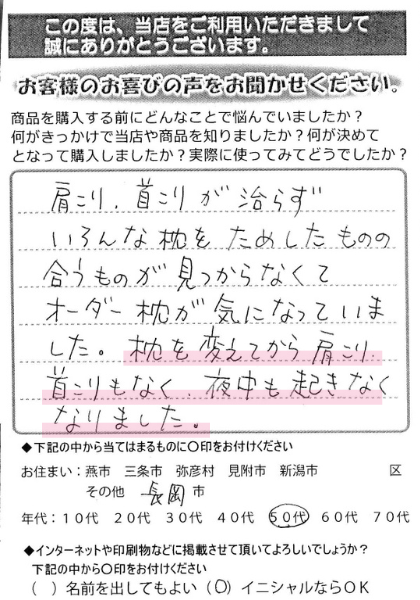 この度は、当店をご利用いただきまして
誠にありがとうございます。
お客様のお喜びの声をお聞かせください。
商品を購入する前にどんなことで悩んでいましたか？
何がきっかけで当店や商品を知りましたか？何が決めて
となって購入しましたか？実際に使ってみてどうでしたか？
肩こり、首こりが治らず
いろんな枕をためしたものの
合うものが見つからなくて
オーダー枕が気になっていま
した。枕を変えてから肩こり、
首こりもなく、夜中も起きなく
なりました。
◆下記の中から当てはまるものに○印をお付けください
お住まい：燕市 三条市 弥彦村 見附市 新潟市 区
その他 長岡市
年代：10代 20代 30代 40代 50代 60代 70代
◆インターネットや印刷物などに掲載させて頂いてよろしいでしょうか？
下記の中から○印をお付けください
（ ）名前を出してもよい（○）イニシャルならOK